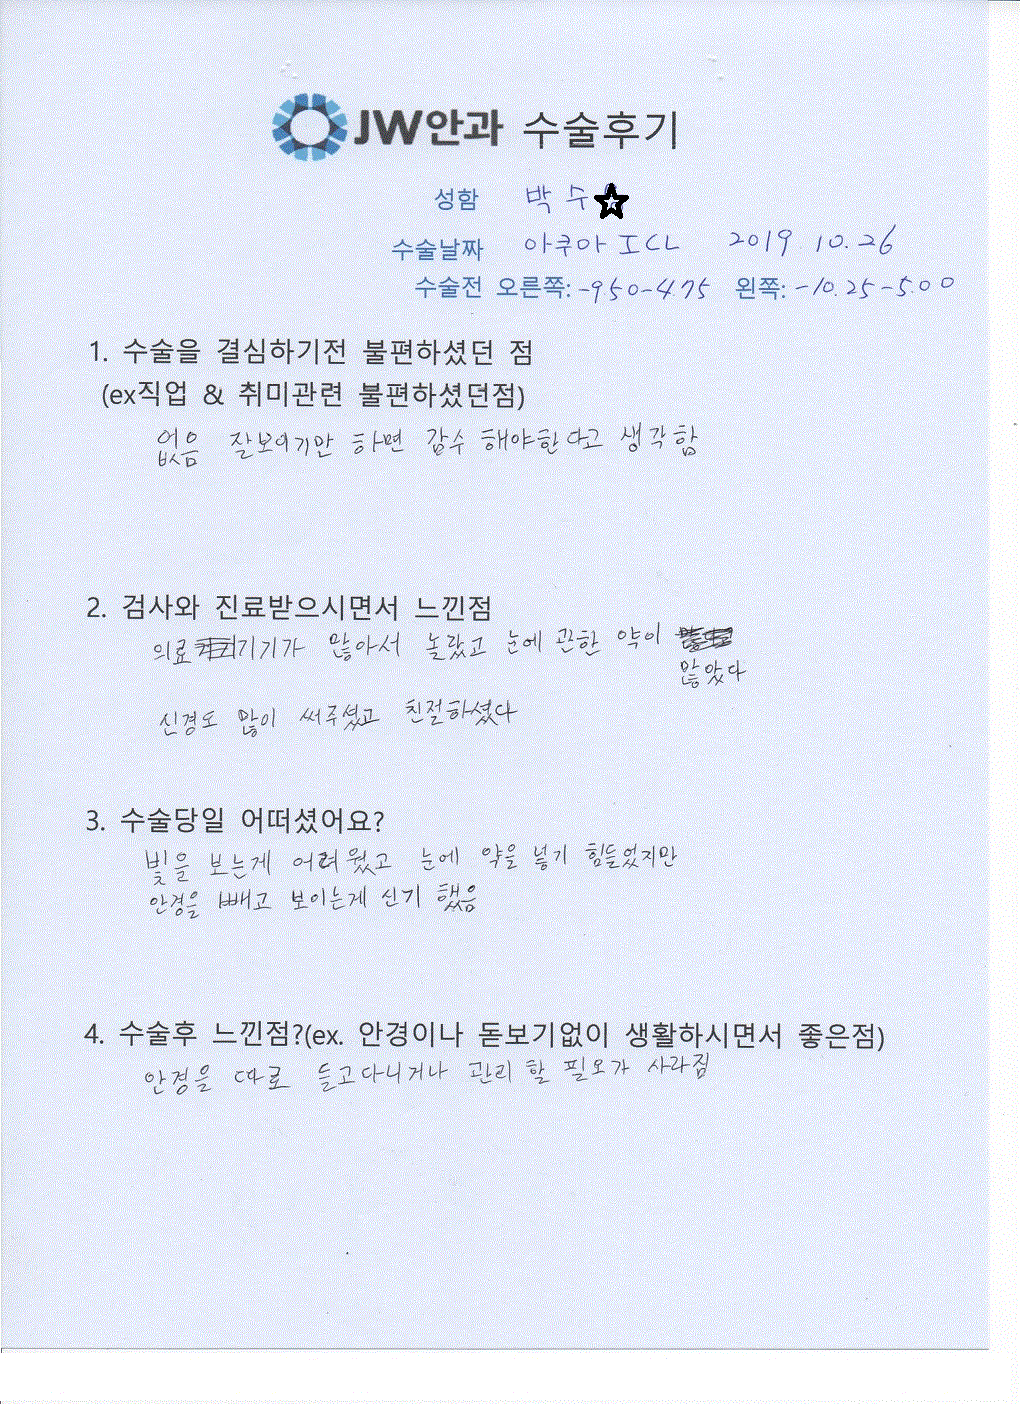 JW안과 수술후기
성함 박수
수술날짜 아쿠아 ICL 2019. 10. 26
수술전 오른쪽: -950-4.75 왼쪽: -10.25-5.00
1. 수술을 결심하기전 불편하셨던 점
(ex직업 & 취미관련 불편하셨던점)
없음 잘보이기만 하면 감수 해야한다고 생각함
2. 검사와 진료받으시면서 느낀점
의료기기가 많아서 놀랐고 눈에 관한 약이
많았다
신경도 많이 써주셨고 친절하셨다
3. 수술당일 어떠셨어요?
빛을 보는게 어려웠고 눈에 약을 넣기 힘들었지만
안경을 빼고 보이는게 신기 했음
4. 수술후 느낀점?(ex. 안경이나 돋보기없이 생활하시면서 좋은점)
안경을 따로 들고다니거나 관리 할 필요가 사라짐